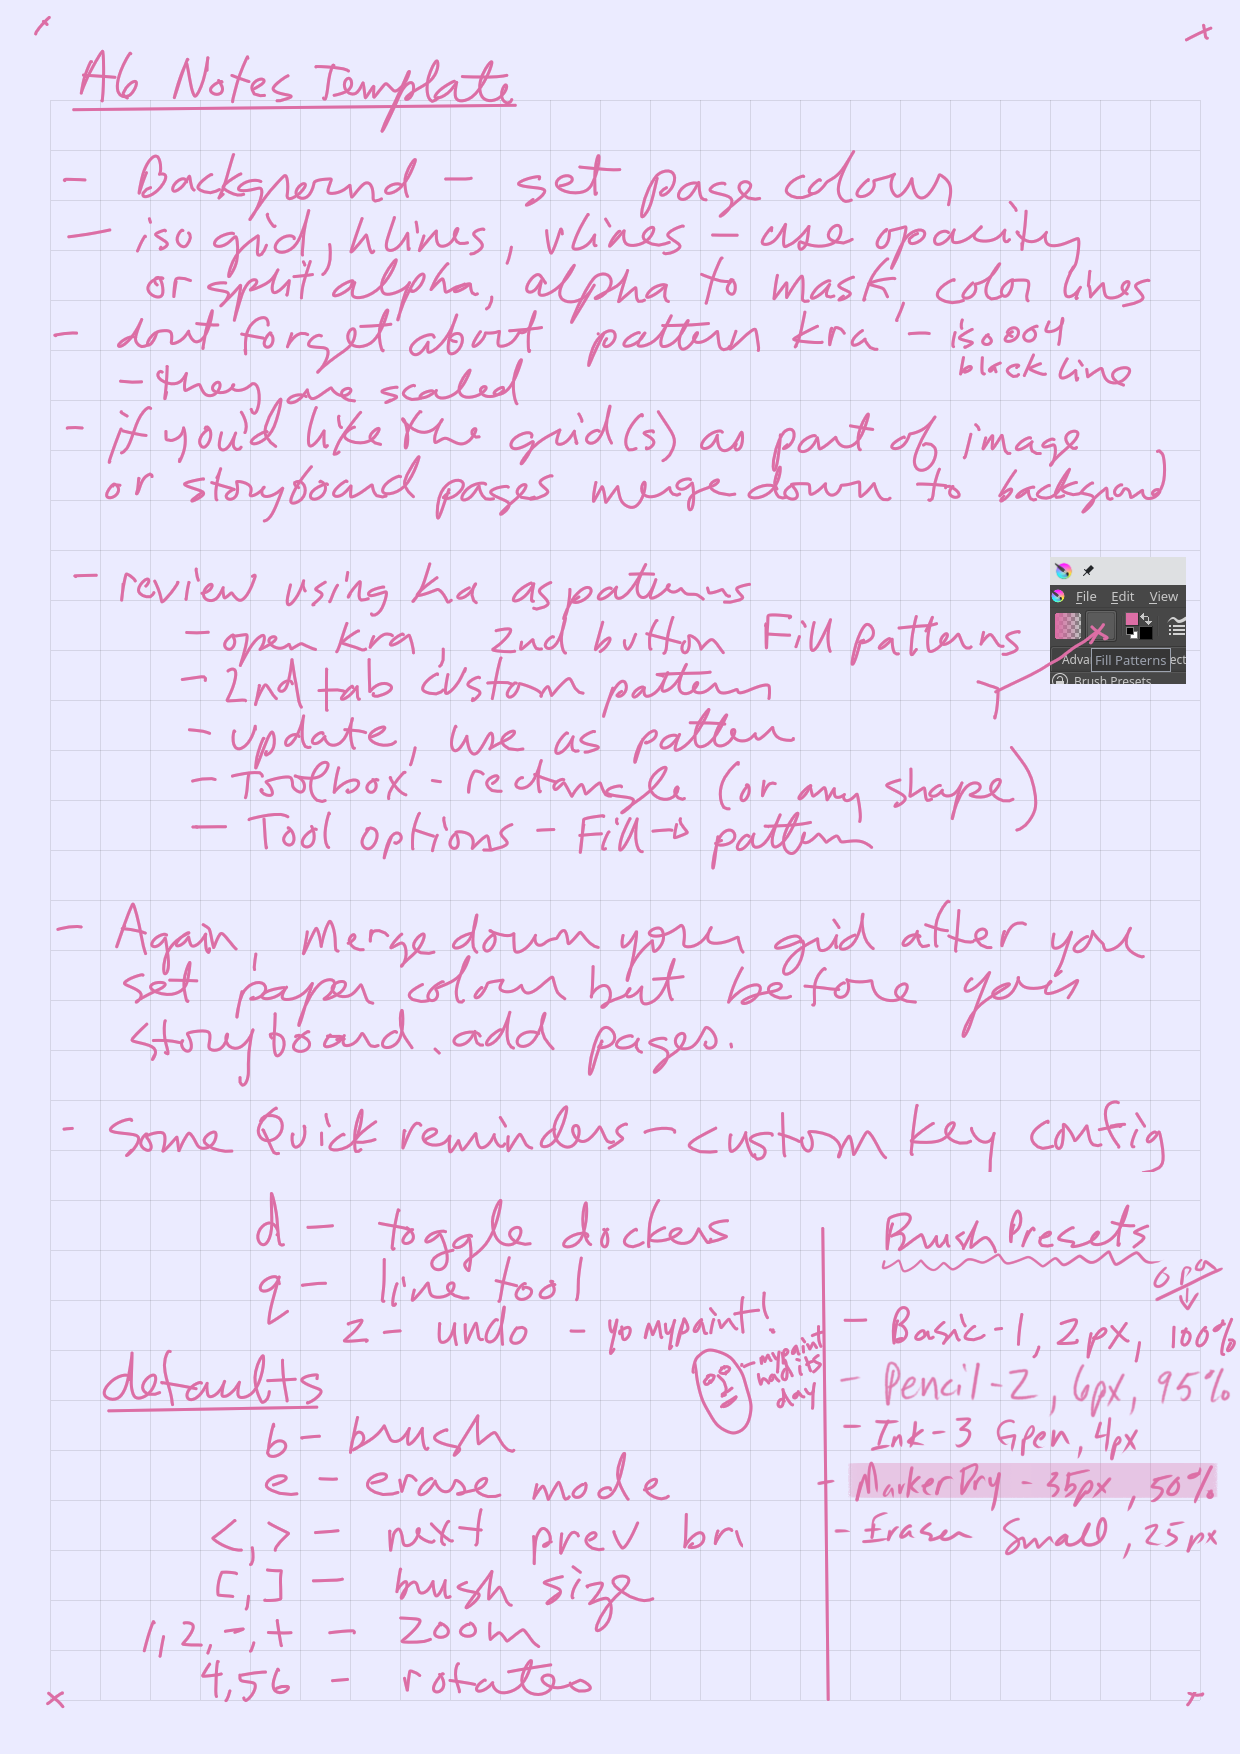 A6 Notes Template
- Background - set page colour
- iso grid, hlines, vlines - use opacity
or split alpha, alpha to mask, color lines
- dont forget about pattern kra - iso 004
black line
- they are scaled
- if you'd like the grid(s) as part of image
or storyboard pages merge down to background
- review using kra as patterns
- open kra, 2nd button Fill patterns
- 2nd tab custom pattern
- update, use as pattern
- Toolbox - rectangle (or any shape)
- Tool options - Fill → pattern
File Edit View
Adva Fill Patterns ect
Brush Presets
- Again, Merge down your grid after you
set paper colour but before your
storyboard. add pages.
- Some Quick reminders - custom key config
d - toggle dockers
q - line tool
z - undo - yo mypaint!
- mypaint
had its
day
defaults
b - brush
e - erase mode
<, > - next prev bru
[, ] - brush size
1, 2, -, + - zoom
4, 5 6 - rotates
Brush Presets
opa
- Basic - 1, 2px, 100%
- Pencil - 2, 6px, 95%
- Ink - 3 Gpen, 4px
- Marker Dry - 35px, 50%
- Eraser Small, 25px